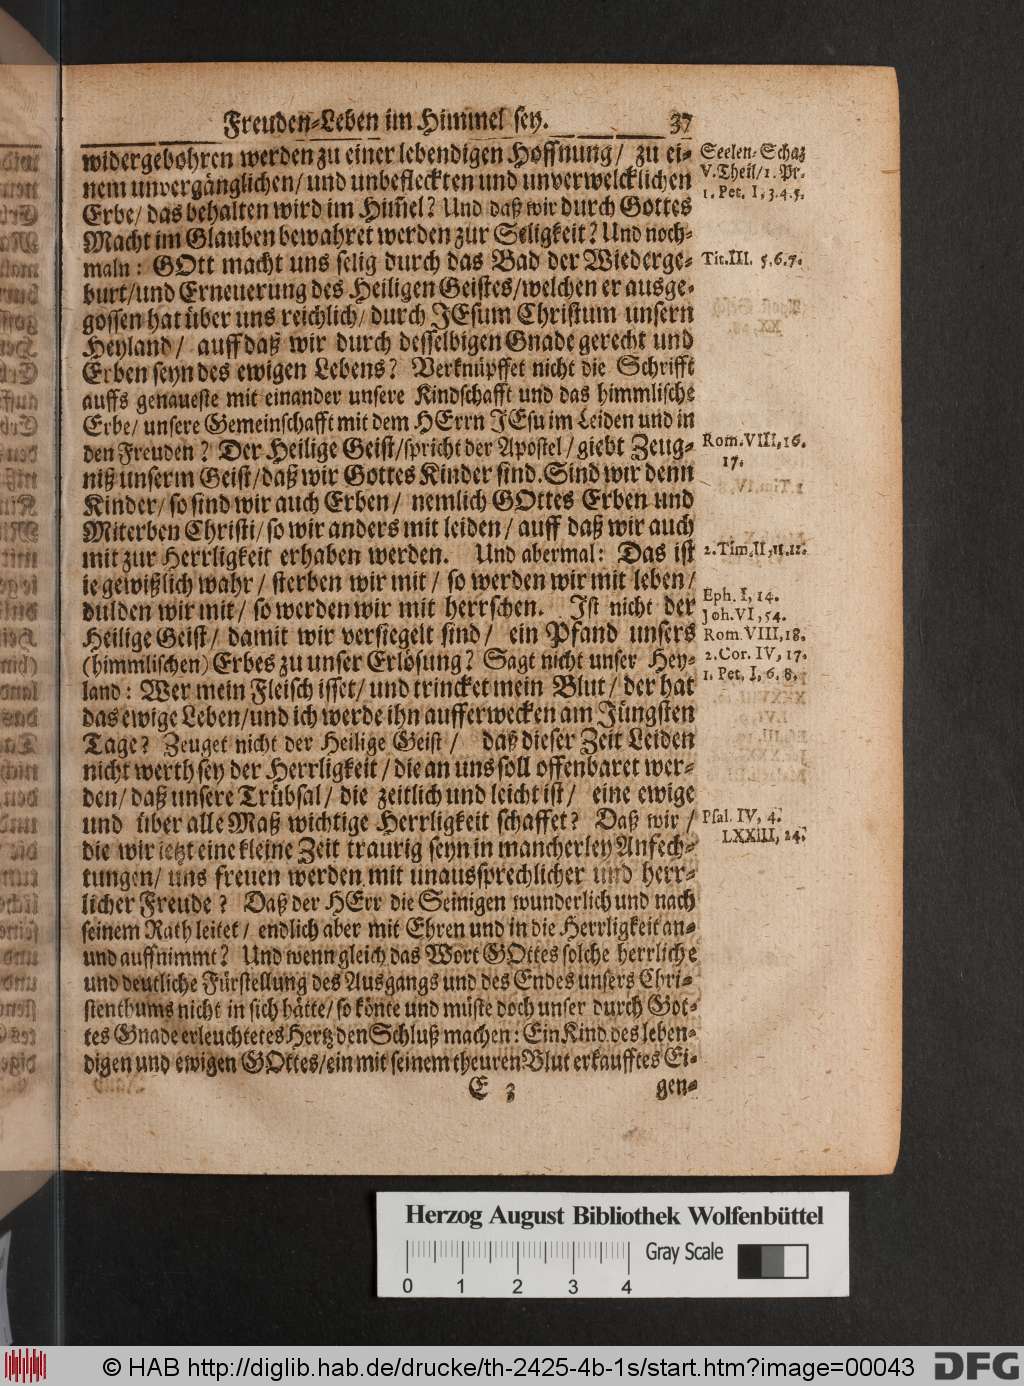 Freuden-Leben im Himmel sey. 37
widergebohren werden zu einer lebendigen Hoffnung/ zu ei-
nem unvergänglichen/ und unbefleckten und unverwelcklichen
Erbe/ das behalten wird im Him̃el? Und daß wir durch Gottes
Macht im Glauben bewahret werden zur Seligkeit? Und noch-
maln: GOtt macht uns selig durch das Bad der Wiederge-
burt/ und Erneuerung des Heiligen Geistes/ welchen er ausge-
gossen hat über uns reichlich/ durch JEsum Christum unsern
Heyland/ auff daß wir durch desselbigen Gnade gerecht und
Erben seyn des ewigen Lebens? Verknüpffet nicht die Schrifft
auffs genaueste mit einander unsere Kindschafft und das himmlische
Erbe/ unsere Gemeinschafft mit dem HErrn JEsu im Leiden und in
den Freuden? Der Heilige Geist/ spricht der Apostel/ giebt Zeug-
niß unserm Geist/ daß wir Gottes Kinder sind. Sind wir denn
Kinder/ so sind wir auch Erben/ nemlich GOttes Erben und
Miterben Christi/ so wir anders mit leiden/ auff daß wir auch
mit zur Herrligkeit erhaben werden. Und abermal: Das ist
ie gewißlich wahr/ sterben wir mit/ so werden wir mit leben/
dulden wir mit/ so werden wir mit herrschen. Ist nicht der
Heilige Geist/ damit wir versiegelt sind/ ein Pfand unsers
(himmlischen) Erbes zu unser Erlösung? Sagt nicht unser Hey-
land: Wer mein Fleisch isset/ und trincket mein Blut/ der hat
das ewige Leben/ und ich werde ihn aufferwecken am Jüngsten
Tage? Zeuget nicht der Heilige Geist/ daß dieser Zeit Leiden
nicht werth sey der Herrligkeit/ die an uns soll offenbaret wer-
den/ daß unsere Trübsal/ die zeitlich und leicht ist/ eine ewige
und über alle Maß wichtige Herrligkeit schaffet? Daß wir/
die wir ietzt eine kleine Zeit traurig seyn in mancherley Anfech-
tungen/ uns freuen werden mit unaussprechlicher und herr-
licher Freude? Daß der HErr die Seinigen wunderlich und nach
seinem Rath leitet/ endlich aber mit Ehren und in die Herrligkeit an-
und auffnimmt? Und wenn gleich das Wort GOttes solche herrliche
und deutliche Fürstellung des Ausgangs und des Endes unsers Chri-
stenthums nicht in sich hätte/ so könte und müste doch unser durch Got-
tes Gnade erleuchtetes Hertz den Schluß machen: Ein Kind des leben-
digen und ewigen GOttes/ ein mit seinem theuren Blut erkaufftes Ei-
E 3 gen-
Seelen-Schaz
V. Theil/ 1. Pr.
1. Pet. I, 3.4.5.
Tit. III. 5.6.7.
Rom. VIII, 16.
17.
2. Tim. II, 11.12.
Eph. I, 14.
Joh. VI, 54.
Rom. VIII, 18.
2. Cor. IV, 17.
1. Pet. I, 6. 8.
Psal. IV, 4.
LXXIII, 24.
Herzog August Bibliothek Wolfenbüttel
Gray Scale
0 1 2 3 4
© HAB http://diglib.hab.de/drucke/th-2425-4b-1s/start.htm?image=00043
DFG